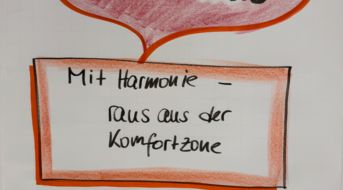 Mit Harmonie –
raus aus der
Komfortzone